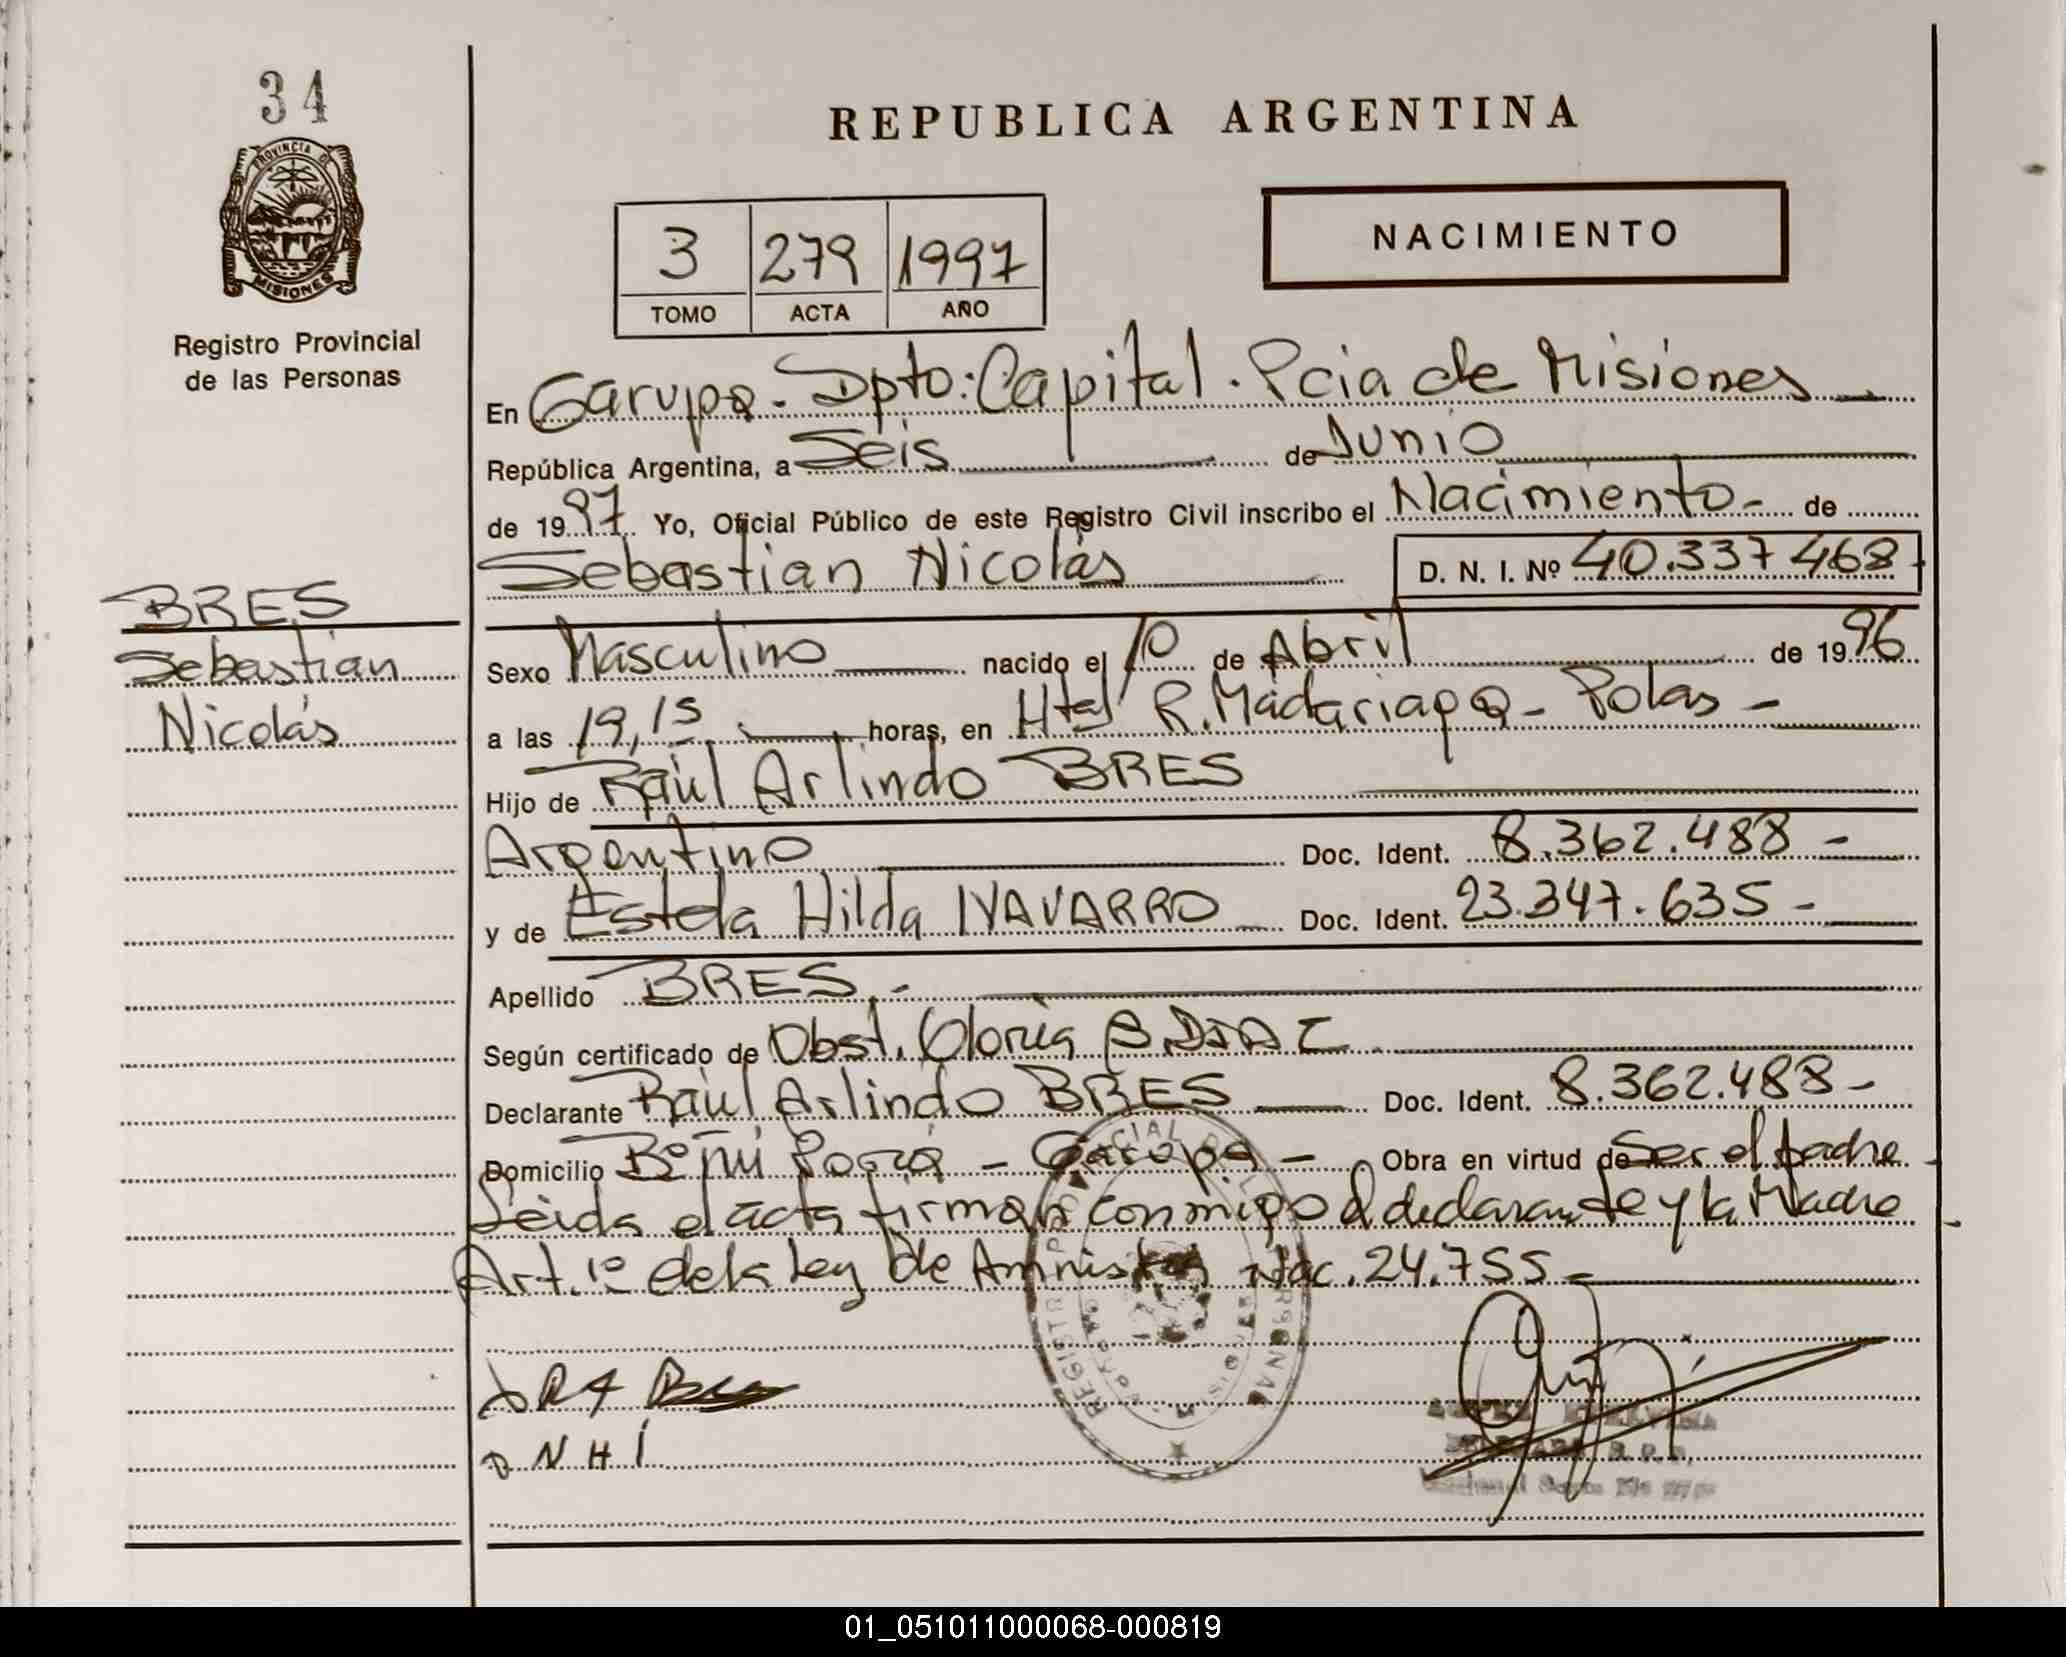 34
PROVINCIA DE
MISIONES
Registro Provincial
de las Personas
REPUBLICA ARGENTINA
NACIMIENTO
3 279 1997
TOMO ACTA AÑO
En Garupa - Dpto: Capital. Pcia de Misiones
República Argentina, a Seis de Junio
de 1997 Yo, Oficial Público de este Registro Civil inscribo el Nacimiento - de
Sebastian Nicolás D. N. I. Nº 40.337468
BRES
Sebastián
Nicolás
Sexo Masculino nacido el 10 de Abril de 1996
a las 19,15 horas, en Htal R. Madariaga - Pdas -
Hijo de Raúl Arlindo BRES
Argentino Doc. Ident. 8.362.488 -
y de Estela Hilda NAVARRO Doc. Ident. 23.347.635 -
Apellido BRES. -
Según certificado de Obst. Gloria B. DIAZ
Declarante Raúl Arlindo BRES Doc. Ident. 8.362.488 -
Domicilio Bº Ñu Porá - Garupa - Obra en virtud de Ser el padre
Leida el acta firman conmigo el declarante y la Madre
Art. 1º de la Ley de Amnistia Nac. 24.755 -
N H
R. P. P.
01_051011000068-000819